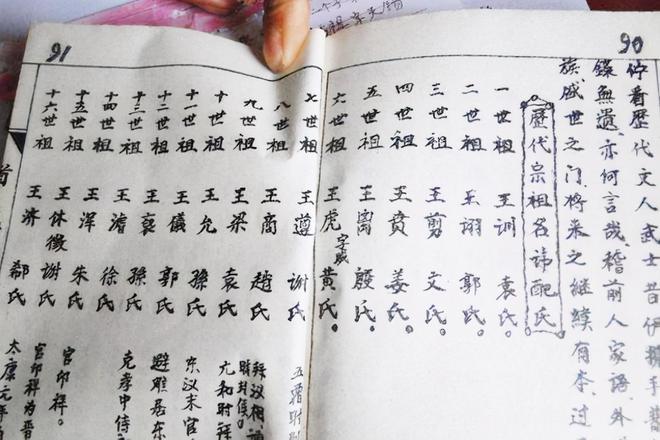 90
佇看歷代文人武士昔伊揚手普
錄無遺亦何言哉稽前人家語外
族盛世之門將來之繼續有本過
歷代宗祖名諱配氏
一世祖 王訓 袁氏。
二世祖 王翊 郭氏。
三世祖 王剪 文氏。
四世祖 王賁 姜氏。
五世祖 王离 殷氏。
六世祖 王虎 字威 黃氏。
91
七世祖 王遵 谢氏 五曹时
八世祖 王商 趙氏 拜汉相
九世祖 王梁 袁氏 元和时拜
十世祖 王允 孫氏 东汉末官
十一世祖 王儀 郭氏 避难居东
十二世祖 王裒 孫氏 克孝中侍
十三世祖 王濬 徐氏
十四世祖 王浑 朱氏 官印祥。
十五世祖 王休徵 谢氏 官印祥为晋
十六世祖 王济 郗氏 太康元年
首